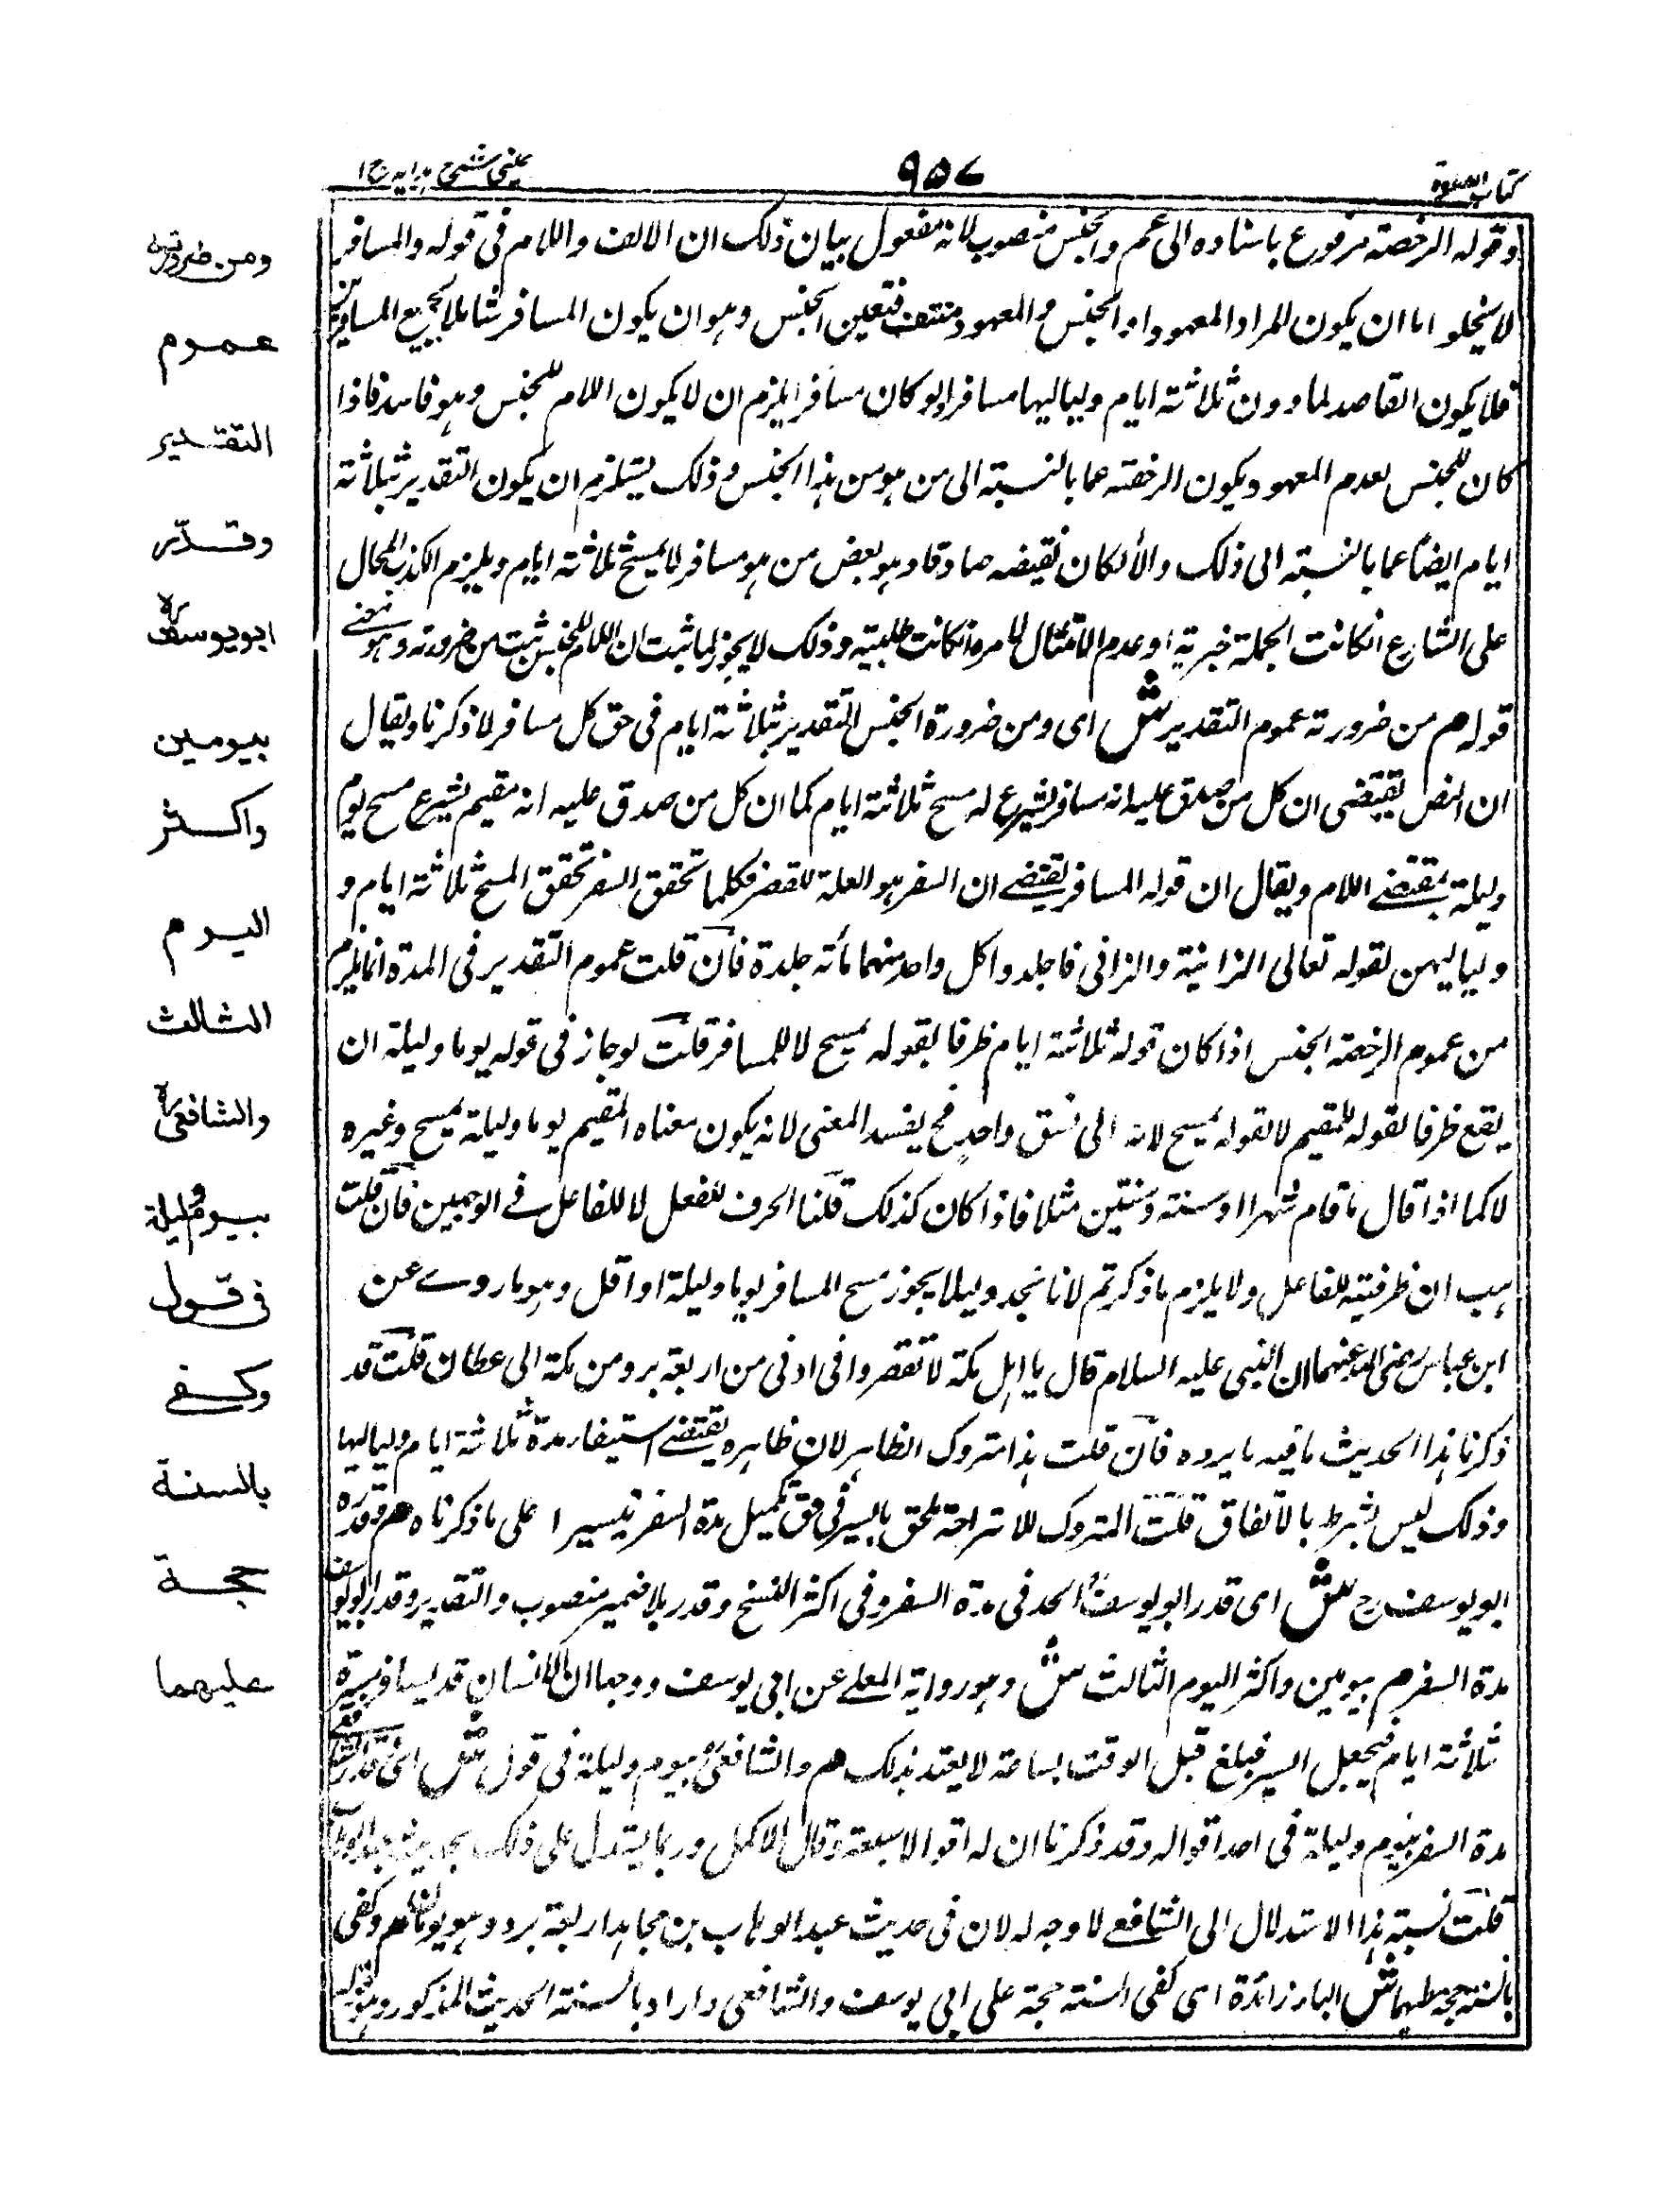 كتاب الصلوة
٩٥٧
عينى شرح هدايه ج ١
وقوله الرخصة مرفوع باسناده الى عم والجنس منصوب لانه مفعول بيان ذلك ان الالف واللام فى قوله والمسافر
لا يخلو اما ان يكون المراد المعهود او الجنس والمعهود منتف فتعين الجنس وهو ان يكون المسافر شاملا لجميع المسافرين
فلا يكون القاصد لما دون ثلاثة ايام ولياليها مسافرا ولو كان مسافرا يلزم ان لا يكون اللام للجنس وهو فاسد فاذا
كان للجنس لعدم المعهود يكون الرخصة عما بالنسبة الى من هو من هذا الجنس وذلك يستلزم ان يكون التقدير بثلاثة
ايام ايضا عما بالنسبة الى ذلك والا لكان نقيضه صادقا وهو بعض من هو مسافر لا يمسح ثلاثة ايام ويلزم الكذب المحال
على الشارع ان كانت الجملة خبرية او عدم الامتثال لامره ان كانت طلبية وذلك لا يجوز لما ثبت ان اللام للجنس ثبت من ضرورته وهو معنى
قوله م من ضرورته عموم التقدير ش اى ومن ضرورة الجنس التقدير بثلاثة ايام فى حق كل مسافر لما ذكرنا ويقال
ان النص يقتضى ان كل من صدق عليه انه مسافر يشرع له مسح ثلاثة ايام كما ان كل من صدق عليه انه مقيم يشرع مسح يوم
وليلة بمقتضى اللام ويقال ان قوله المسافر يقتضى ان السفر هو العلة للقصر فكلما تحقق السفر تحقق المسح ثلاثة ايام و
ولياليهن لقوله تعالى الزانية والزانى فاجلدوا كل واحد منهما مأئة جلدة فان قلت عموم التقدير فى المدة انما يلزم
من عموم الرخصة الجنس اذا كان قوله ثلاثة ايام ظرفا لقوله يمسح لا للمسافر قلت لو جاز فى قوله يوما وليلة ان
يقع ظرفا لقوله للمقيم لا لقوله يمسح لانه الى نسق واحد فح يفسد المعنى لانه يكون معناه المقيم يوما وليلة يمسح وغيره
لا كما اذا قال ما قام شهرا او سنة وسنتين مثلا فاذا كان كذلك قلنا الحرف للفعل لا للفاعل فى الوجهين فان قلت
هب ان ظرفيته للفاعل ولا يلزم ما ذكرتم لانا نجد دليلا يجوز مسح المسافر يوما وليلة او اقل وهو ما روى عن
ابن عباس رضى الله عنهما ان النبى عليه السلام قال يا اهل مكة لا تقصروا فى ادنى من اربعة برد من مكة الى عطان قلت قد
ذكرنا هذا الحديث ما فيه ما يرده فان قلت هذا متروك الظاهر لان ظاهره يقتضى استيفاء مدة ثلاثة ايام ولياليها
وذلك ليس بشرط بالاتفاق قلت المتروك للاستراحة ملحق بالسير فى حق تكميل مدة السفر تيسيرا على ما ذكرناه م وقدره
ابو يوسف رح ش اى قدر ابو يوسف الحد فى مدة السفر وفى اكثر النسخ وقدر بلا ضمير منصوب والتقدير وقدر ابو يوسف
مدة السفر م بيومين واكثر اليوم الثالث ش وهو رواية المعلى عن ابى يوسف ووجهها ان الانسان قد يسافر مسيرة
ثلاثة ايام فيعجل السير فيبلغ قبل الوقت بساعة لا يعتد بذلك م والشافعى بيوم وليلة فى قول ش اى قدر الشافعى
مدة السفر بيوم وليلة فى احد اقواله وقد ذكرنا ان له اقوالا سبعة وقال الاكمل وربما يستدل على ذلك بحديث عبد الوهاب
قلت نسبة هذا الاستدلال الى الشافعى لا وجه له لان فى حديث عبد الوهاب بن مجاهد اربعة برد وهو يومان م وكفى
بالسنة حجة عليهما ش الباء زائدة اى كفى السنة حجة على ابى يوسف والشافعى واراد بالسنة الحديث المذكور وهو قوله
ومن ضرورته
عموم
التقدير
وقدّر
ابويوسف
بيومين
واكثر
اليوم
الثالث
والشافعى
بيوم وليلة
فى قول
وكفى
بالسنة
حجة
عليهما